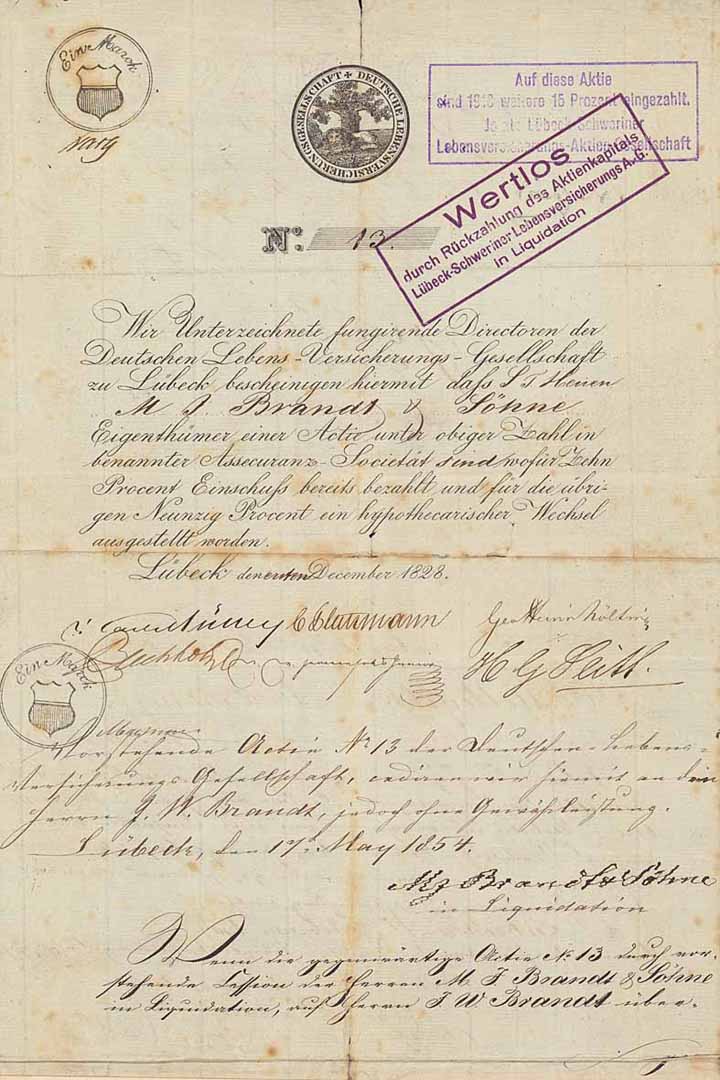 Ein Marck
DEUTSCHE LEBENSVERSICHERUNGSGESELLSCHAFT
Auf diese Aktie
sind 1918 weitere 15 Prozent eingezahlt.
Lübeck-Schweriner
Lebensversicherungs-Aktien-Gesellschaft
Wertlos
durch Rückzahlung des Aktienkapitals
Lübeck-Schweriner Lebensversicherungs A.-G.
in Liquidation
No. 13.
Wir Unterzeichnete fungirende Directoren der
Deutschen Lebens-Versicherungs-Gesellschaft
zu Lübeck bescheinigen hiermit dass S. T. Herren
M J Brandt & Söhne
Eigenthümer einer Actie unter obiger Zahl in
benannter Assecuranz-Societät sind wofür Zehn
Procent Einschuss bereits bezahlt und für die übri-
gen Neunzig Procent ein hypothecarischer Wechsel
ausgestellt worden.
Lübeck den ersten December 1828.
Ein Marck
Vorstehende Actie No 13 der Deutschen Lebens-
Versicherungs-Gesellschaft, cediren wir hiemit an den
Herrn J. W. Brandt, jedoch ohne Gewährleistung.
Lübeck, den 17. May 1854.
Brandt & Söhne
in Liquidation
Wenn die gegenwärtige Actie No 13 durch vor-
stehende Cession der Herren M. J. Brandt & Söhne
in Liquidation, auf Herrn J W Brandt über-